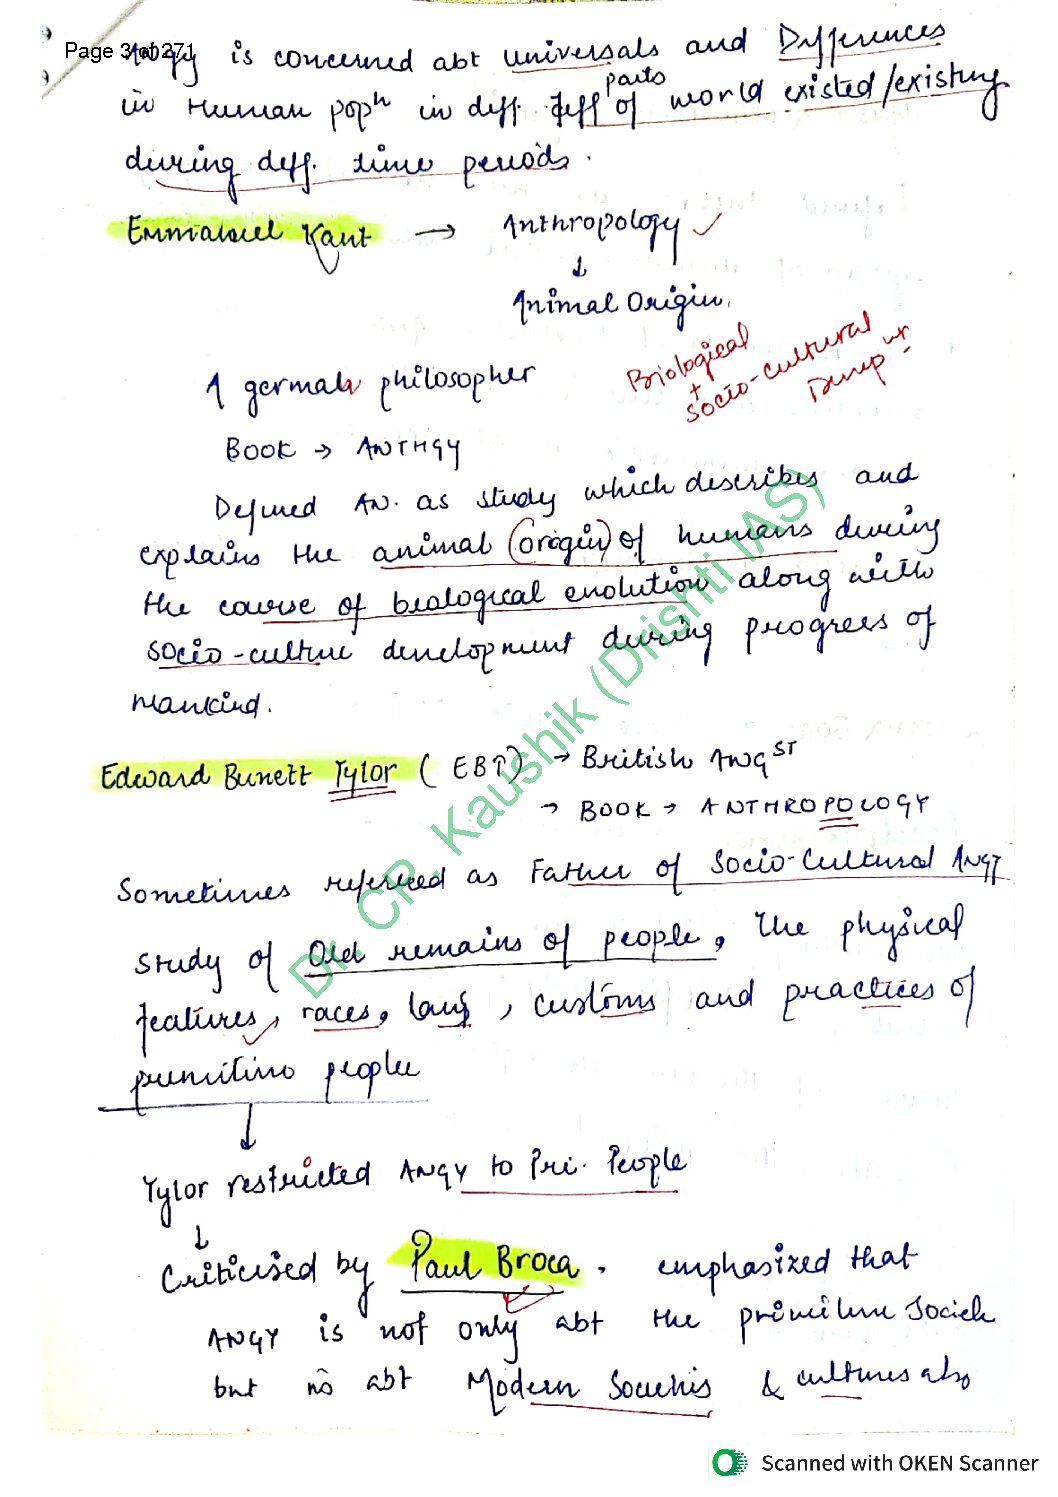 Page 3 of 271
Angy is concerned abt universals and Differences
in Human popn in diff. diff parts of world existed/existing
during diff. time periods.
Emmanuel Kant → Anthropology ✓
↓
Animal Origin.
Biological
+
socio-cultural
A german philosopher
Book → ANTHGY
Defined AN. as study which describes and
explains the animal origin of humans during
the course of biological evolution along with
socio-culture development during progress of
mankind.
Edward Bunett Tylor (EBT) → British ANGST
→ BOOK → ANTHROPOLOGY
Sometimes referred as Father of Socio-Cultural ANGY
Study of Old remains of people, the physical
features, races, lang, customs and practices of
primitive people
↓
Tylor restricted ANGY to Pri. People
↓
Criticised by Paul Broca. emphasized that
ANGY is not only abt the primitive societies
but is abt Modern Societies & cultures also
Dr. CP. Kaushik (Drishti IAS)
Scanned with OKEN Scanner